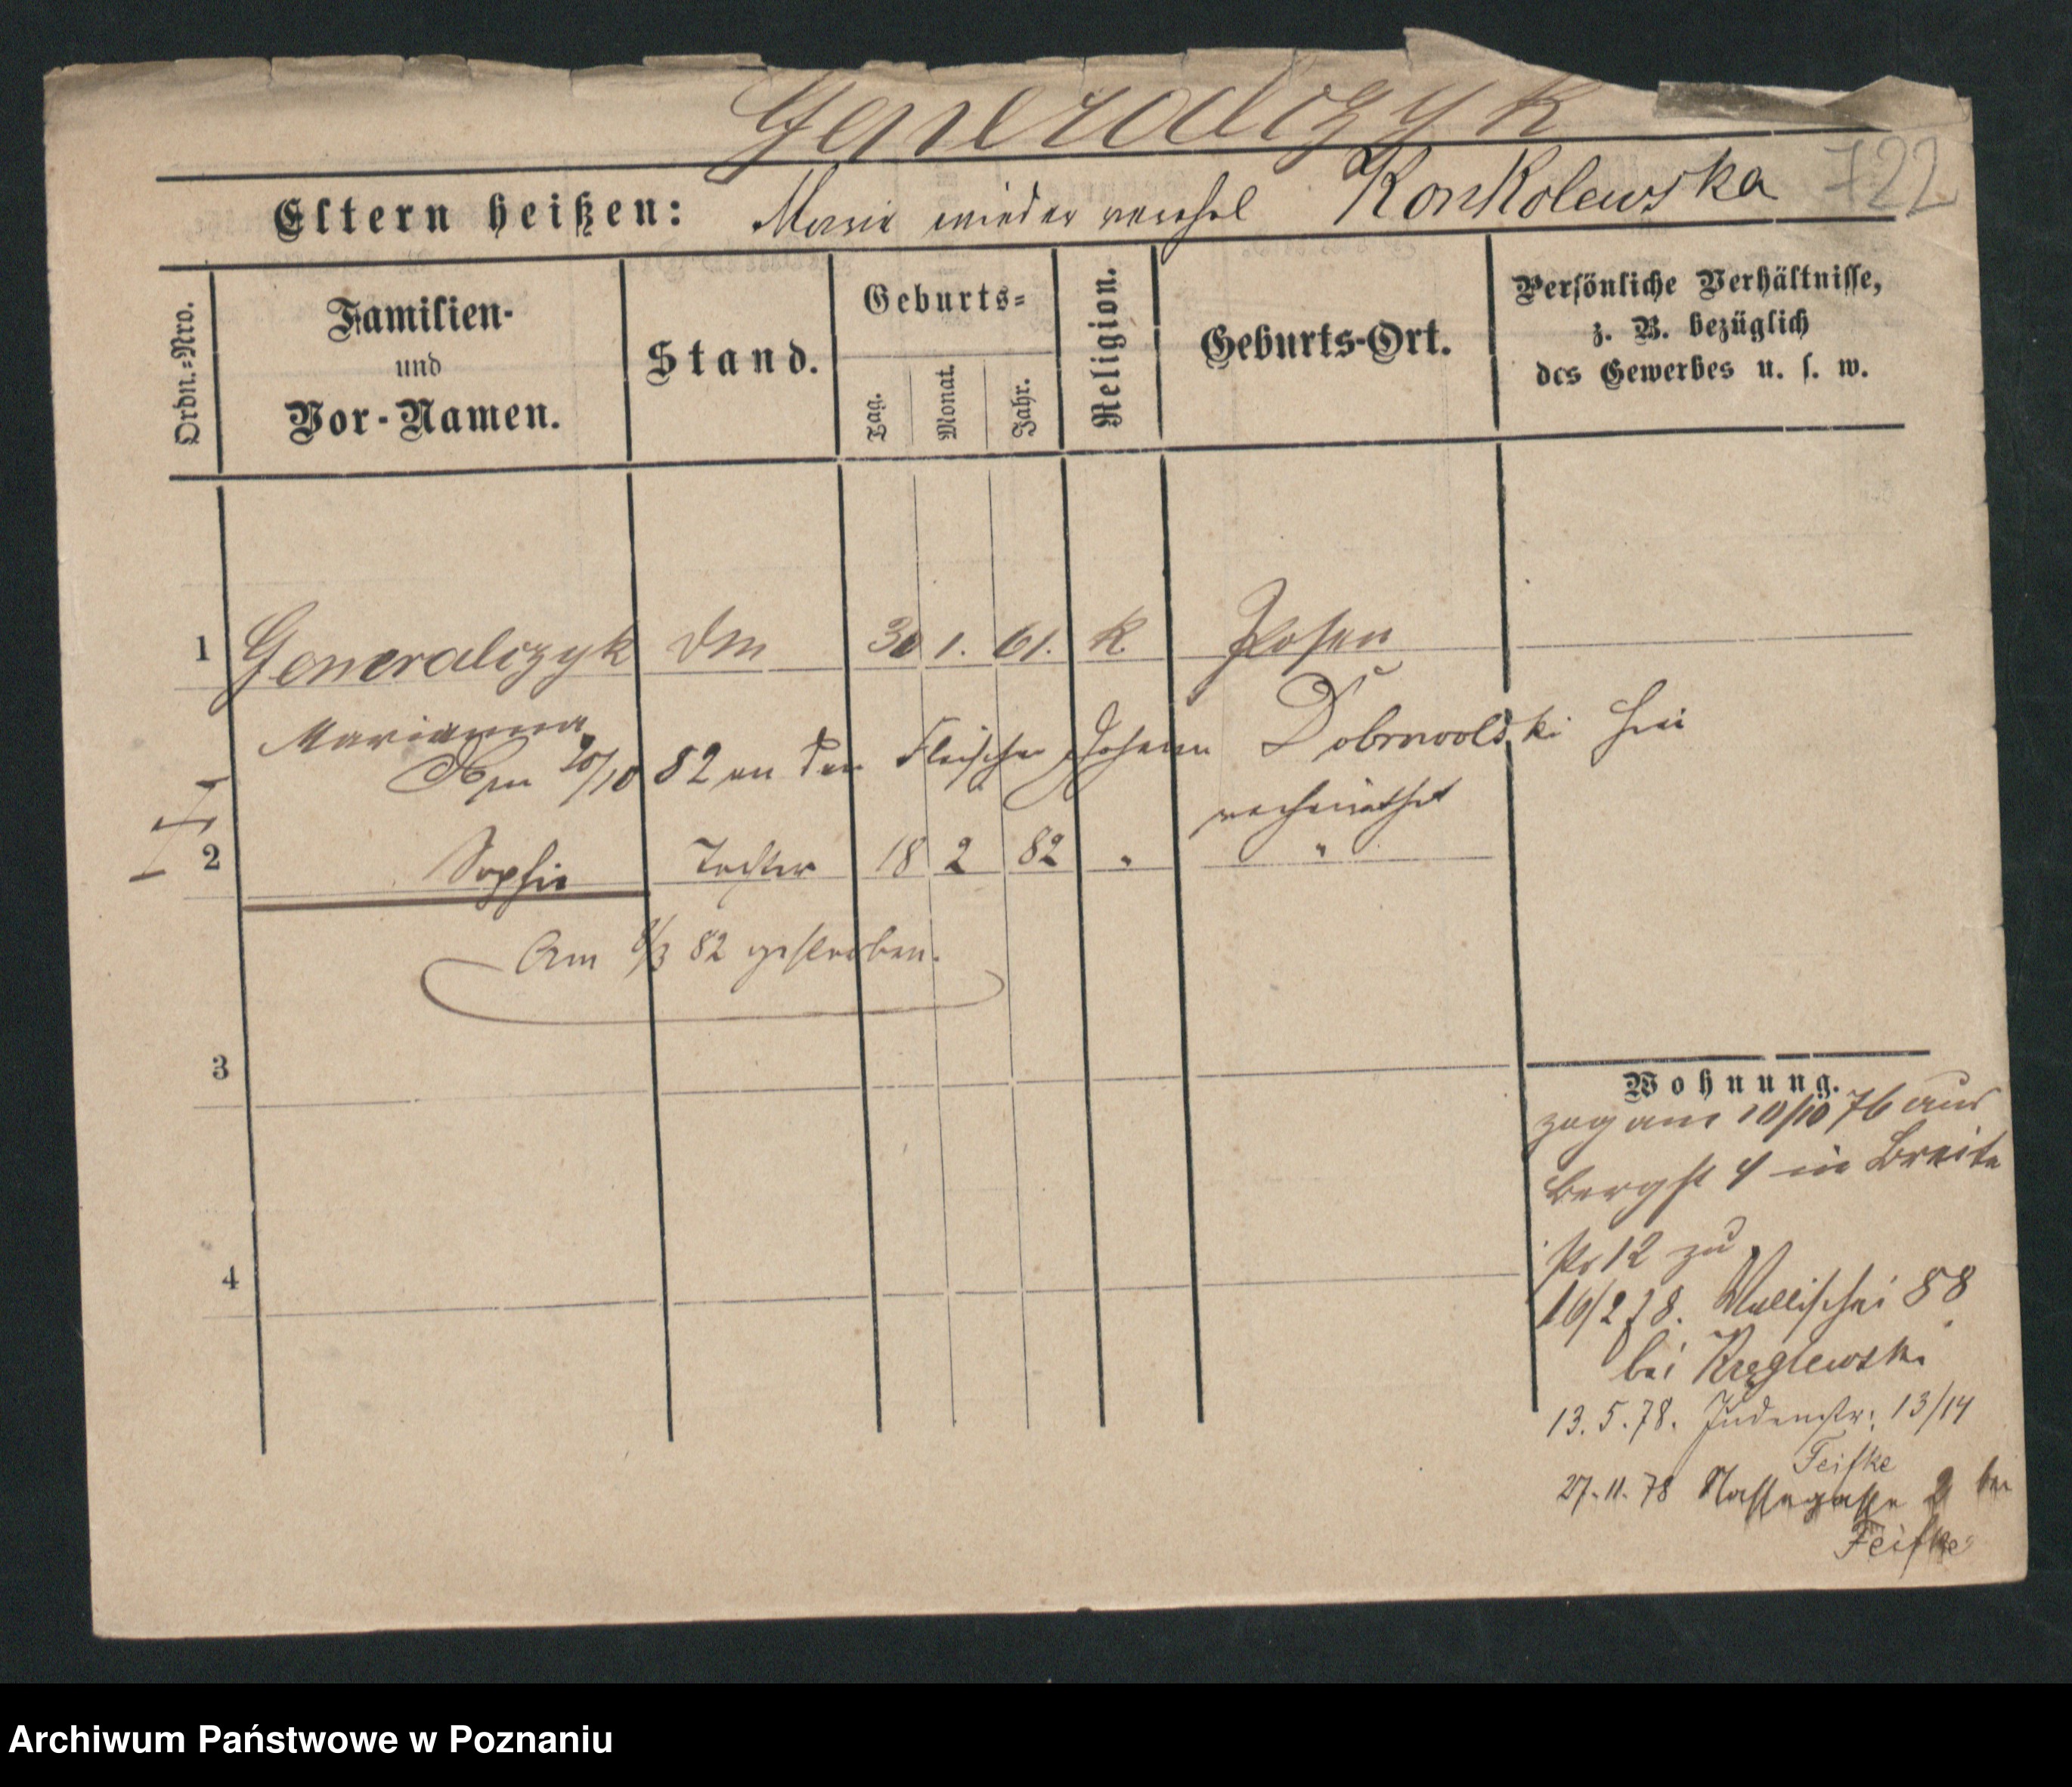 Generalczyk
722
Eltern heißen: Marie wieder verehel Konkolewska
Ordn.=Nro.
Familien-
und
Vor-Namen.
Stand.
Geburts=
Tag.
Monat.
Jahr.
Religion.
Geburts-Ort.
Persönliche Verhältnisse,
z. B. bezüglich
des Gewerbes u. s. w.
1 Generalczyk Dm 30 1. 61. K. Posen
Marianna
Am 20/10 82 an den Fleischer Johann Dobrowolski hier
verheirathet
2 Sophie Tochter 18 2 82 " "
Am 8/3 82 gestorben.
3
4
Wohnung.
zog am 10/10 76 aus
Bergst 4 in Breite
str 12 zu
16/2 78. Wallischei 88
bei Kręglewski
13. 5. 78. Judenstr. 13/14
Feifke
27. 11. 78 Nassegasse 2 bei
Feifke
Archiwum Państwowe w Poznaniu